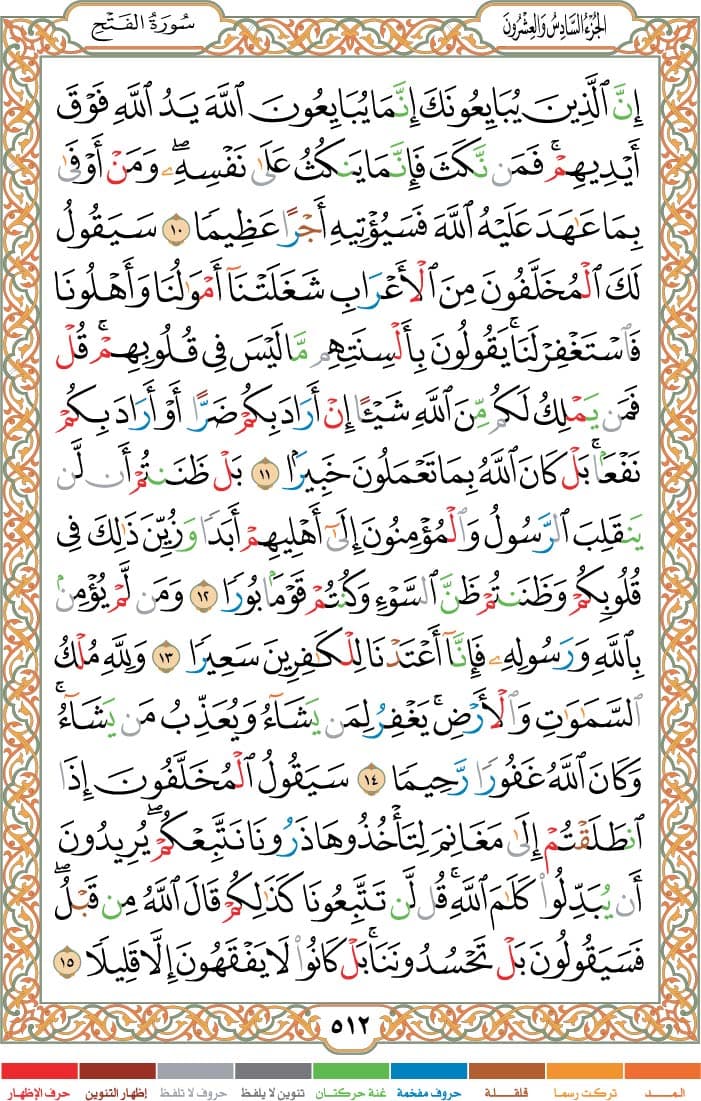 سُورَةُ الفَتْحِ
الجُزْءُ السَّادِسُ وَالعِشْرُونَ
إِنَّ ٱلَّذِينَ يُبَايِعُونَكَ إِنَّمَا يُبَايِعُونَ ٱللَّهَ يَدُ ٱللَّهِ فَوْقَ
أَيْدِيهِمْۚ فَمَن نَّكَثَ فَإِنَّمَا يَنكُثُ عَلَىٰ نَفْسِهِۦۖ وَمَنْ أَوْفَىٰ
بِمَا عَٰهَدَ عَلَيْهُ ٱللَّهَ فَسَيُؤْتِيهِ أَجْرًا عَظِيمًا ١٠ سَيَقُولُ
لَكَ ٱلْمُخَلَّفُونَ مِنَ ٱلْأَعْرَابِ شَغَلَتْنَآ أَمْوَٰلُنَا وَأَهْلُونَا
فَٱسْتَغْفِرْ لَنَاۚ يَقُولُونَ بِأَلْسِنَتِهِم مَّا لَيْسَ فِى قُلُوبِهِمْۚ قُلْ
فَمَن يَمْلِكُ لَكُم مِّنَ ٱللَّهِ شَيْـًٔا إِنْ أَرَادَ بِكُمْ ضَرًّا أَوْ أَرَادَ بِكُمْ
نَفْعَۢاۚ بَلْ كَانَ ٱللَّهُ بِمَا تَعْمَلُونَ خَبِيرَۢا ١١ بَلْ ظَنَنتُمْ أَن لَّن
يَنقَلِبَ ٱلرَّسُولُ وَٱلْمُؤْمِنُونَ إِلَىٰٓ أَهْلِيهِمْ أَبَدًا وَزُيِّنَ ذَٰلِكَ فِى
قُلُوبِكُمْ وَظَنَنتُمْ ظَنَّ ٱلسَّوْءِ وَكُنتُمْ قَوْمَۢا بُورًا ١٢ وَمَن لَّمْ يُؤْمِنۢ
بِٱللَّهِ وَرَسُولِهِۦ فَإِنَّآ أَعْتَدْنَا لِلْكَٰفِرِينَ سَعِيرًا ١٣ وَلِلَّهِ مُلْكُ
ٱلسَّمَٰوَٰتِ وَٱلْأَرْضِۚ يَغْفِرُ لِمَن يَشَآءُ وَيُعَذِّبُ مَن يَشَآءُۚ
وَكَانَ ٱللَّهُ غَفُورًا رَّحِيمًا ١٤ سَيَقُولُ ٱلْمُخَلَّفُونَ إِذَا
ٱنطَلَقْتُمْ إِلَىٰ مَغَانِمَ لِتَأْخُذُوهَا ذَرُونَا نَتَّبِعْكُمْۖ يُرِيدُونَ
أَن يُبَدِّلُوا۟ كَلَٰمَ ٱللَّهِۚ قُل لَّن تَتَّبِعُونَا كَذَٰلِكُمْ قَالَ ٱللَّهُ مِن قَبْلُۖ
فَسَيَقُولُونَ بَلْ تَحْسُدُونَنَاۚ بَلْ كَانُوا۟ لَا يَفْقَهُونَ إِلَّا قَلِيلًا ١٥
٥١٢
المــــد تركت رسما قلقـــلة حروف مفخمة غنة حركتان تنوين لا يلفظ حروف لا تلفظ إظهار التنوين حرف الإظهار